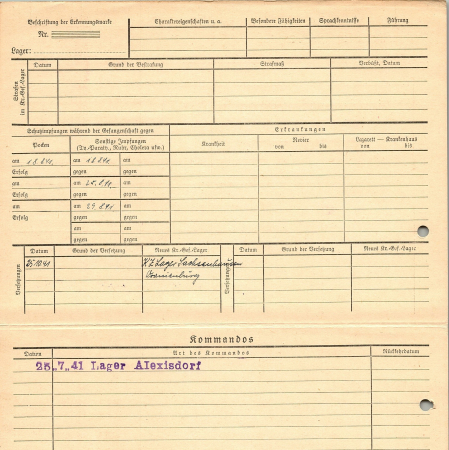 Beschriftung der Erkennungsmarke
Nr.
Lager:
Charaktereigenschaften u. a.
Besondere Fähigkeiten
Sprachkenntnisse
Führung
Strafen im Kr.-Gef.-Lager
Datum
Grund der Bestrafung
Strafmaß
Verbüßt, Datum
Schutzimpfungen während der Gefangenschaft gegen
Erkrankungen
Pocken
Sonstige Impfungen
(Ty.-Paraty., Ruhr, Cholera usw.)
Krankheit
Revier
von bis
Lazarett — Krankenhaus
von bis
am 18.8.41. am 18.8.41 am
Erfolg gegen gegen
am am 25.8.41. am
Erfolg gegen gegen
am am 29.8.41 am
Erfolg gegen gegen
am am
gegen gegen
Versetzungen
Datum
Grund der Versetzung
Neues Kr.-Gef.-Lager
Versetzungen
Datum
Grund der Versetzung
Neues Kr.-Gef.-Lager
25.10.41 K.Z. Lager Sachsenhausen
Oranienburg
Kommandos
Datum
Art des Kommandos
Rückkehrdatum
25.7.41 Lager Alexisdorf